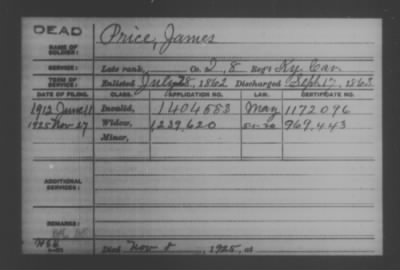 DEAD
NAME OF SOLDIER: Price, James
SERVICE: Late rank, Co. I, 8 Reg't Ky. Cav.
TERM OF SERVICE: Enlisted July 28, 1862 Discharged Sept. 17, 1863
DATE OF FILING. CLASS. APPLICATION NO. LAW. CERTIFICATE NO.
1912 June 11 Invalid, 1404583 May 1172096
1925 Nov-27 Widow, 1239,620 969,443
Minor,
ADDITIONAL SERVICES:
REMARKS:
Died Nov 8, 1925, at